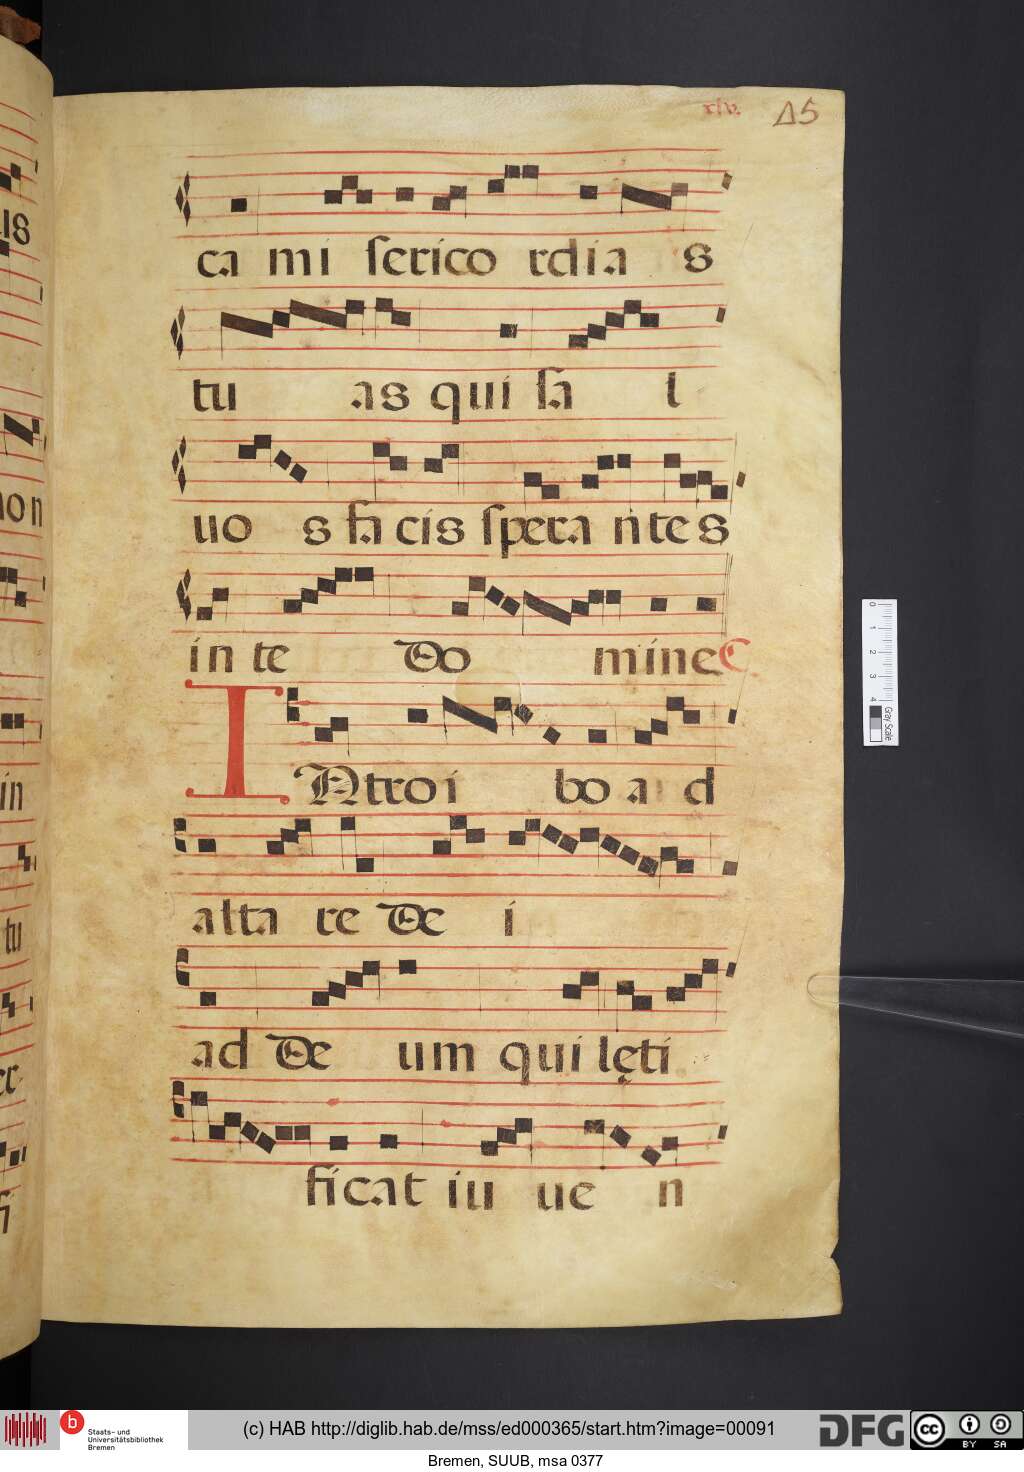 xlv. 45
ca mi ſerico rdia s
tu as qui ſa l
uo s fa cis ſpera ntes
in te Do mine C
INtroi bo a d
alta re De i
ad De um qui lęti
ficat iu ue n
0 1 2 3 4
Gray Scale
b Staats- und Universitätsbibliothek Bremen
(c) HAB http://diglib.hab.de/mss/ed000365/start.htm?image=00091
DFG
cc BY SA
Bremen, SUUB, msa 0377